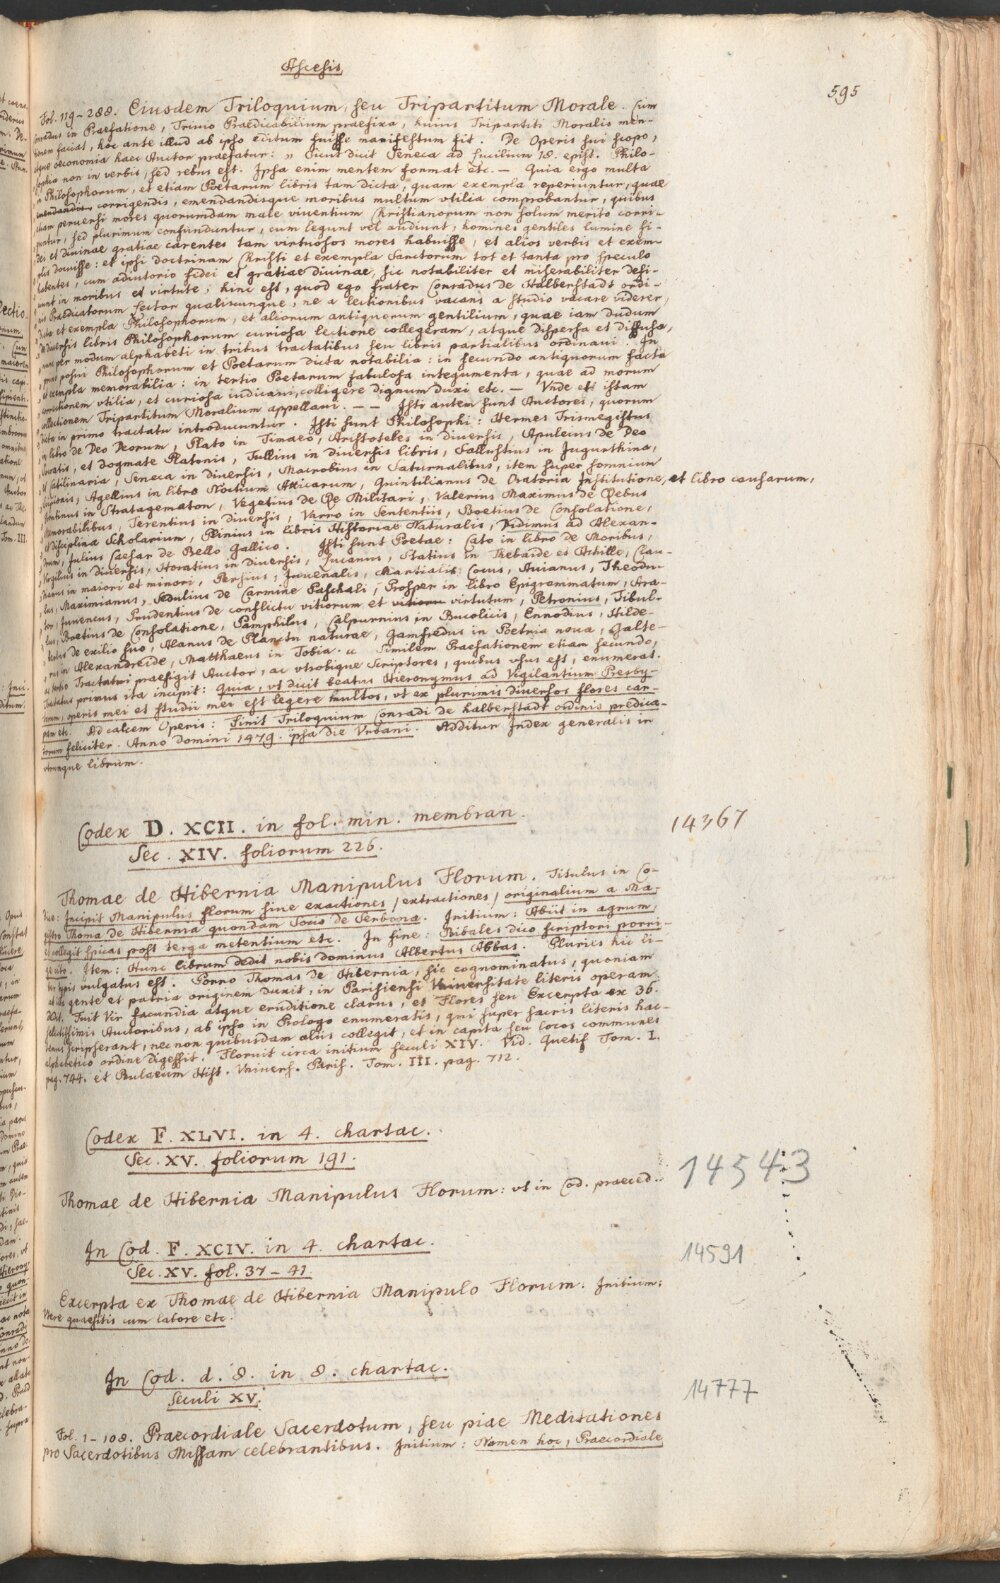 Ascesis
595
Fol. 119-288. Eiusdem Triloquium, seu Tripartitum Morale. Cum
in Praefatione, Trivio Praedicabilium praefixa, huius Tripartiti Moralis men-
tionem faciat, hoc ante illud ab ipso editum fuisse manifestum fit. De Operis sui scopo,
atque oeconomia haec Auctor praefatur: „ Sicut dicit Seneca ad Lucilium 18. epist. Philo-
sophia non in verbis, sed rebus est. Ipsa enim mentem format etc. — Quia ergo multa
in Philosophorum, et etiam Poetarum libris tam dicta, quam exempla reperiuntur, quae
corrigendis, emendandisque moribus multum utilia comprobantur, quibus
etiam peruersi mores quorundam male viventium Christianorum non solum merito corri-
guntur, sed plurimum confunduntur, cum legunt vel audiunt, homines gentiles lumine fi-
dei et divinae gratiae carentes tam virtuosos mores habuisse, et alios verbis et exem-
plis docuisse: et ipsi doctrinam Christi et exempla Sanctorum tot et tanta pro speculo
habentes, cum adiutorio fidei et gratiae divinae, sic notabiliter et miserabiliter defi-
ciunt in moribus et virtute; hinc est, quod ego frater Conradus de Halberstadt ordi-
nis Praedicatorum Lector qualiscunque, ne a lectionibus vacans a studio vacare viderer,
dicta et exempla Philosophorum, et aliorum antiquorum gentilium, quae iam dudum
de diversis libris Philosophorum curiosa lectione collegeram, atque dispersa et diffusa,
per modum alphabeti in tribus tractatibus seu libris partialibus ordinavi. In
posui Philosophorum et Poetarum dicta notabilia: in secundo antiquorum facta
et exempla memorabilia: in tertio Poetarum fabulosa integumenta, quae ad morum
utilia, et curiosa iudicavi, colligere dignum duxi etc. — Unde et istam
collectionem Tripartitum Moralium appellavi. — — Isti autem sunt Auctores, quorum
dicta in primo tractatu introducuntur. Isti sunt Philosophi: Hermes Trismegistus
in libro de Deo Deorum, Plato in Timaeo, Aristoteles in diversis, Apuleius de Deo
Socratis, et Dogmate Platonis, Tullius in diversis libris, Sallustius in Jugurthino,
et Catilinario, Seneca in diversis, Macrobius in Saturnalibus, item super somnium
Scipionis, Agellius in libro Noctium Atticarum, Quintilianus de Oratoria Institutione, et libro causarum,
Frontinus in Stratagematon, Vegetius de Re Militari, Valerius Maximus de Rebus
Memorabilibus, Terentius in diversis, Varro in Sententiis, Boetius de Consolatione,
et Disciplina Scholarium, Plinius in libris Historiae Naturalis, Didimus ad Alexan-
drum, Julius Caesar de Bello Gallico. Isti sunt Poetae: Cato in libro de Moribus,
Virgilius in diversis, Horatius in diversis, Lucanus, Statius in Thebaide et Achille, Clau-
dianus in maiori et minori, Persius, Juvenalis, Martialis Cocus, Avianus, Theodu-
lus, Maximianus, Sedulius de Carmine Paschali, Prosper in libro Epigrammatum, Ara-
tor, Juvencus, Prudentius de conflictu vitiorum et virtutum, Petronius, Tibul-
lus, Boetius de Consolatione, Pamphilus, Calpurnius in Bucolicis, Ennodius, Hilde-
bertus de exilio suo, Alanus de Planctu naturae, Gamfredus in Poetria nova, Galte-
rus in Alexandreide, Matthaeus in Tobia. „ Similem Praefationem etiam secundo,
ac tertio Tractatui praefigit Auctor, ac utrobique Scriptores, quibus usus est, enumerat.
Tractatus primus ita incipit: Quia, ut dicit beatus Hieronymus ad Vigilantium Presby-
terum, operis mei et studii mei est legere multos, ut ex plurimis diversos flores car-
pam etc. Ad calcem Operis: Finit Triloquium Conradi de halberstadt ordinis predica-
torum feliciter. Anno Domini 1479. ipsa die Urbani. Additur Index generalis in
utrumque librum.
Codex D. XCII. in fol. min. membran.
14367
Sec. XIV. foliorum 226.
Thomae de Hibernia Manipulus Florum. Titulus in Co-
dice: Incipit Manipulus florum sine exactiones /extractiones/ originalium a Ma-
gistro Thoma de Hibernia quondam Socio de Serbona. Initium: Abiit in agrum,
et collegit spicas post terga metentium etc. In fine: Bibales dico scriptori porri-
gendo. Item: Hunc librum dedit nobis dominus Albertus Abbas. Pluries hic li-
ber typis vulgatus est. Porro Thomas de Hibernia, sic cognominatus, quoniam
ab his gente et patria originem duxit, in Parisiensi Universitate literis operam
dedit. Fuit vir facundia atque eruditione clarus, et Flores seu Excerpta ex 36.
selectissimis Auctoribus, ab ipso in Prologo enumeratis, qui super sacris literis hac-
tenus scripserant, nec non quibusdam aliis collegit, et in capita seu locos communes
alphabetico ordine digessit. Floruit circa initium seculi XIV. Vid. Quetif Tom. I.
pag. 744. et Bulaeum Hist. Univers. Paris. Tom. III. pag. 712.
Codex F. XLVI. in 4. chartac.
Sec. XV. foliorum 191.
14543
Thomae de Hibernia Manipulus Florum: ut in Cod. praeced.
In Cod. F. XCIV. in 4. chartac.
14591
Sec. XV. fol. 37-41.
Excerpta ex Thomae de Hibernia Manipulo Florum. Initium:
Vere quaesitis cum labore etc.
In Cod. d. 8. in 8. chartac.
14777
Seculi XV.
Fol. 1-108. Praecordiale Sacerdotum, seu piae Meditationes
pro Sacerdotibus Missam celebrantibus. Initium: Nomen hoc, Praecordiale